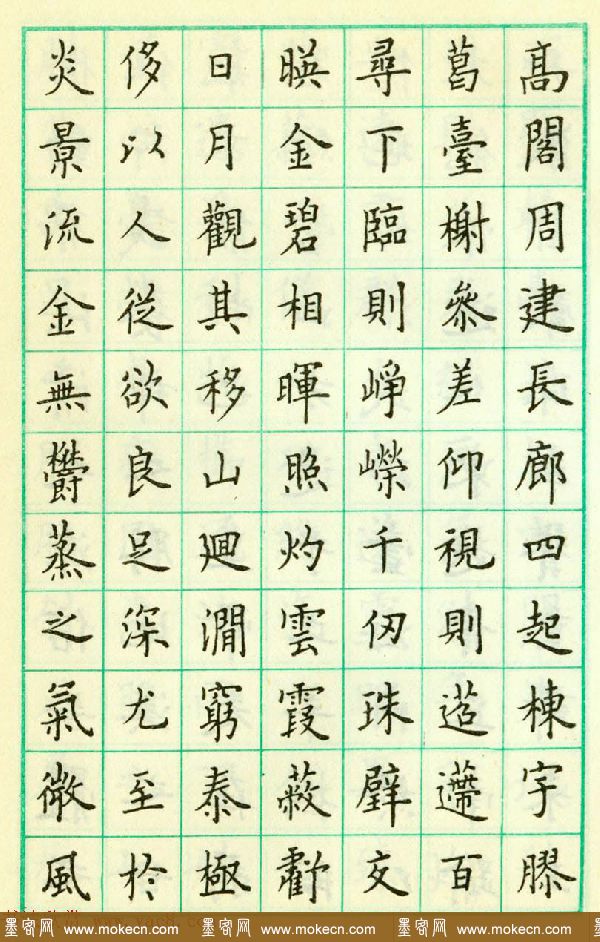 髙閣周建長廊四起棟宇膠
葛臺榭叅差仰視則迢遰百
尋下臨則崢嶸千仞珠璧交
暎金碧相暉照灼雲霞蔽虧
日月觀其移山廻澗窮泰極
侈以人從欲良足深尤至於
炎景流金無鬱蒸之氣微風
墨客网 www.mokecn.com 墨客网 www.mokecn.com 墨客网 www.mokecn.com